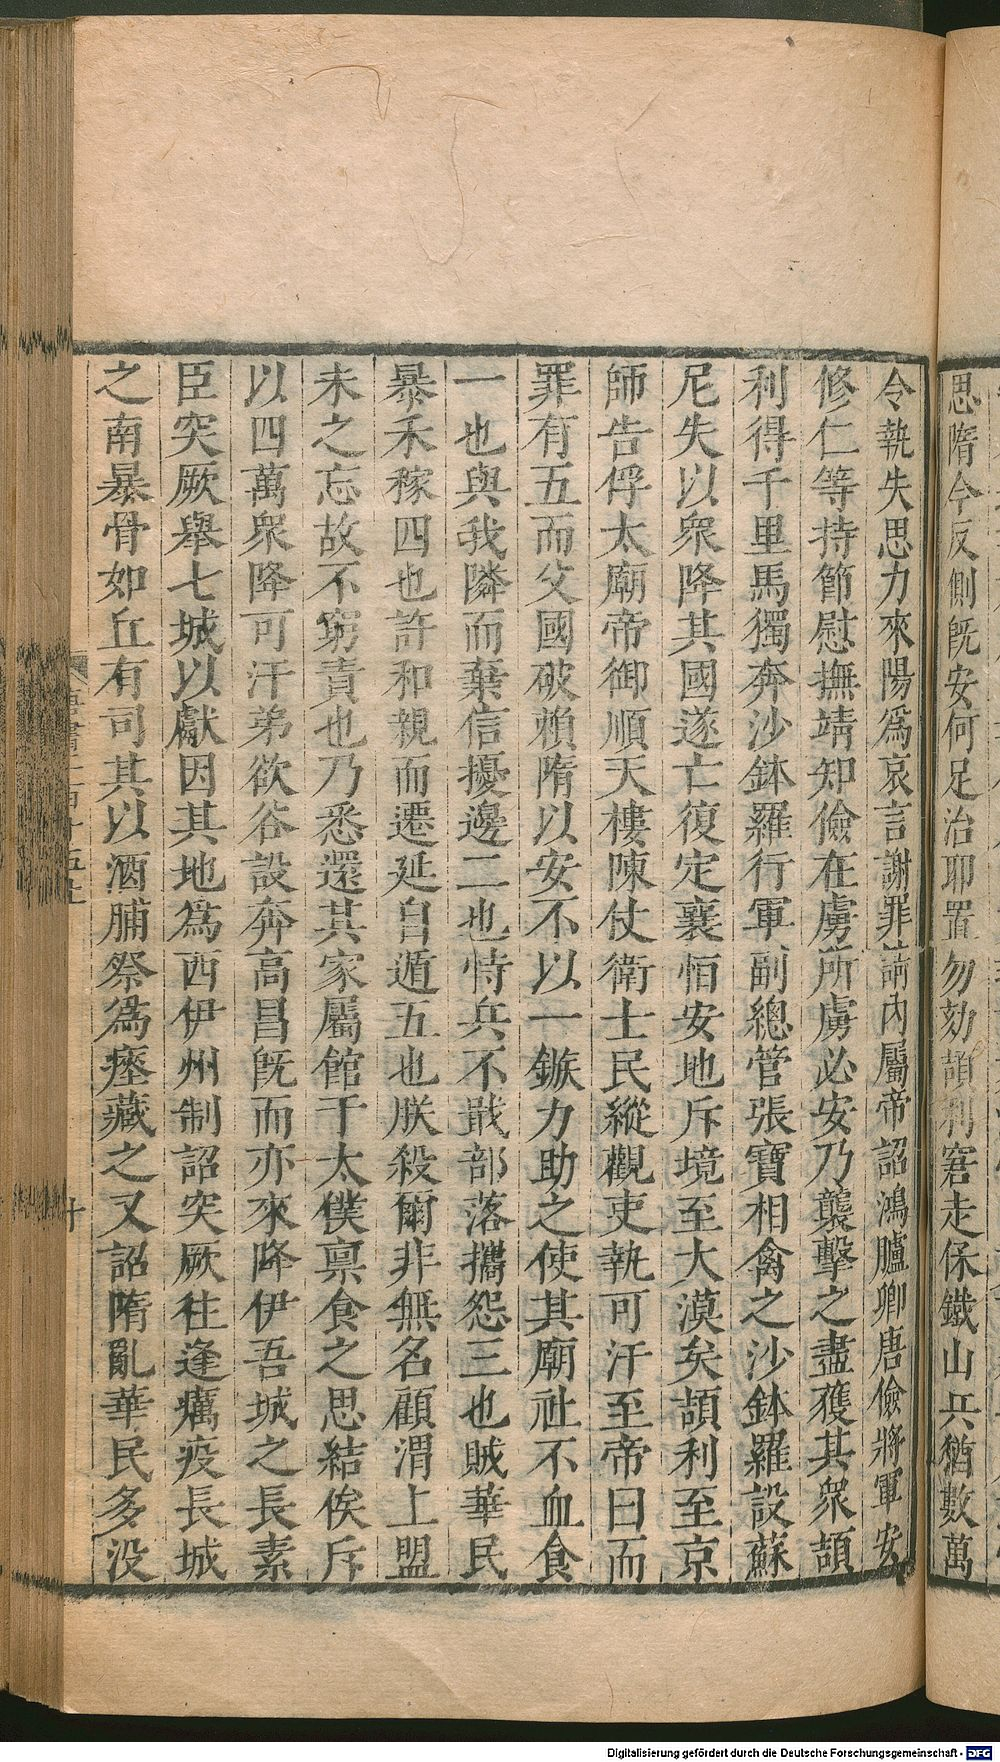 思隋今反側旣安何足治耶置勿劾頡利窘走保鐵山兵猶數萬
令執失思力來陽爲哀言謝罪請內屬帝詔鴻臚卿唐儉將軍安
修仁等持節慰撫靖知儉在虜所虜必安乃襲擊之盡獲其衆頡
利得千里馬獨奔沙鉢羅行軍副總管張寶相禽之沙鉢羅設蘇
尼失以衆降其國遂亡復定襄恒安地斥境至大漠矣頡利至京
師告俘太廟帝御順天樓陳仗衛士民縱觀吏執可汗至帝曰而
罪有五而父國破賴隋以安不以一鏃力助之使其廟社不血食
一也與我隣而棄信擾邊二也恃兵不戢部落攜怨三也賊華民
暴禾稼四也許和親而遷延自遁五也朕殺爾非無名顧渭上盟
未之忘故不窮責也乃悉還其家屬館于太僕稟食之思結俟斥
以四萬衆降可汗弟欲谷設奔高昌旣而亦來降伊吾城之長素
臣突厥舉七城以獻因其地爲西伊州制詔突厥往逢癘疫長城
之南暴骨如丘有司其以酒脯祭爲瘞藏之又詔隋亂華民多没
唐書二百十五上
十
Digitalisierung gefördert durch die Deutsche Forschungsgemeinschaft - DFG